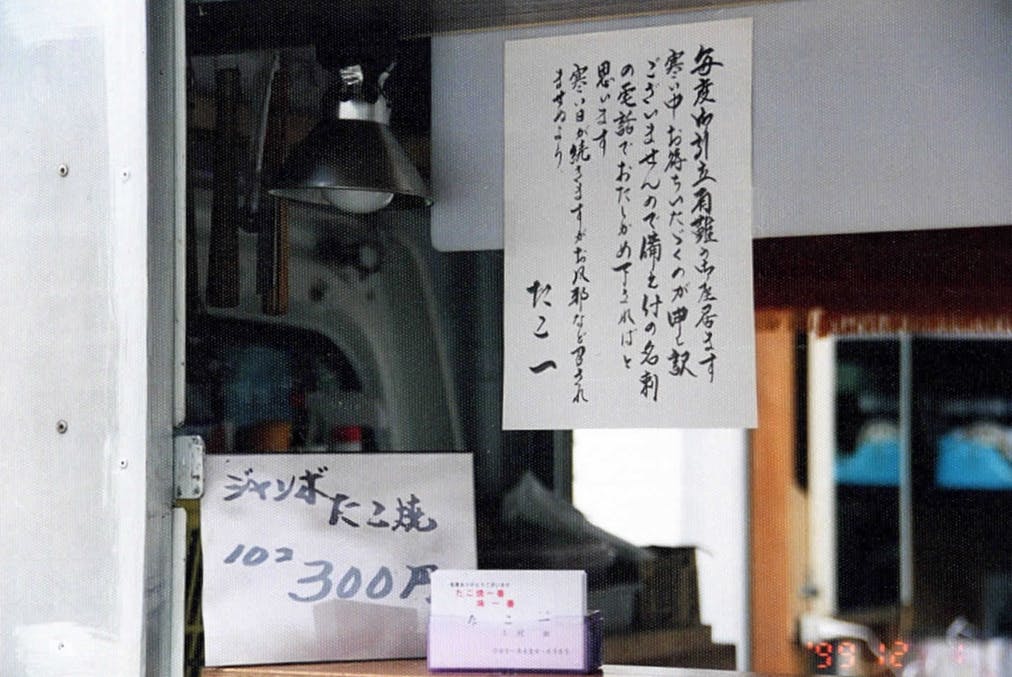 毎度御引立有難う御座居ます
寒い中お待ちいたゞくのが申し訳
ございませんので備え付の名刺
の電話でおたしかめ下さればと
思います
寒い日が続きますがお風邪など召され
ませぬよう
たこ一
ジャンボたこ焼
10コ 300円
毎度ありがとうございます
たこ焼一番
味一番
たこ一
'99 12 1